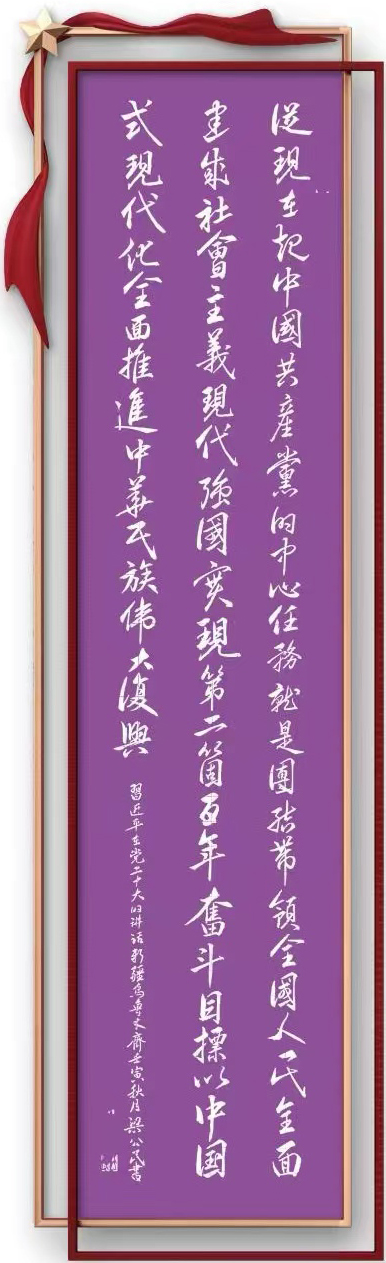 從現在起中國共產黨的中心任務就是團結帶領全國人民全面
建成社會主義現代強國實現第二箇百年奮斗目標以中國
式現代化全面推進中華民族偉大復興
習近平在党二十大的讲话新疆烏魯木齊壬寅秋月梁公民書